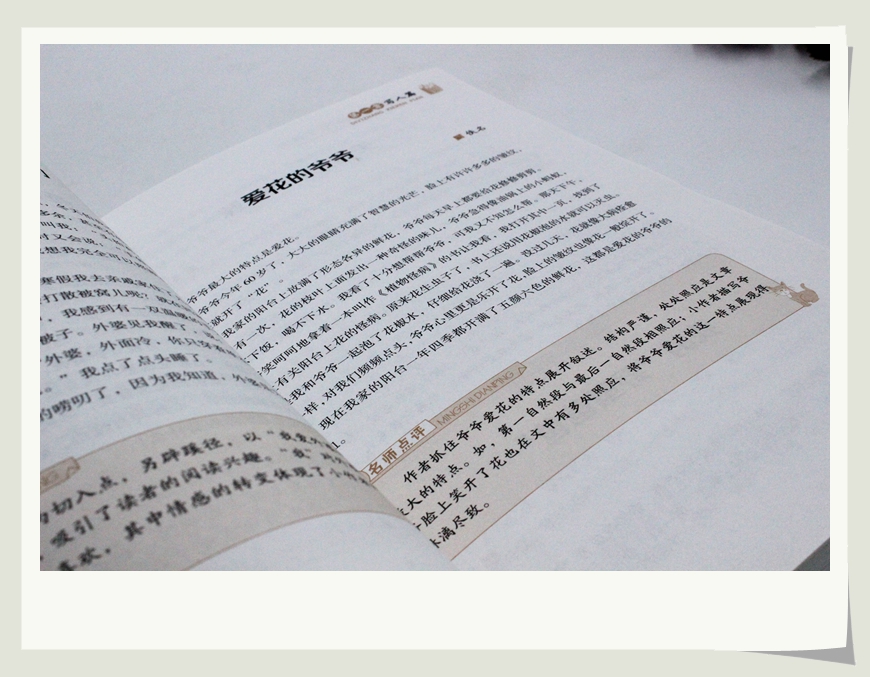 多余，
叫我：“
时又会说：
想我完全可以
寒假我去亲戚家
打散被窝儿呢？
，我感到有一双温暖
被子。外婆见我醒了，
外婆，外面冷，你只穿
。”我点了点头睡了。
的唠叨了，因为我知道，外婆
为切入点，另辟蹊径，以“我爱外
吸引了读者的阅读兴趣。“我”
喜欢，其中情感的转变体现了小作
写人篇
佚名
爱花的爷爷
爷爷最大的特点是爱花。
爷爷今年60岁了，大大的眼睛充满了智慧的光芒，脸上有许许多多的皱纹，
就开了“花”。
我家的阳台上放满了形态各异的鲜花，爷爷每天早上都要给花修修剪剪。
有一次，花的枝叶上面发出一种奇怪的味儿，爷爷急得像油锅上的小蚂蚁，
下饭，喝不下水。我看了十分想帮帮爷爷，可我又不知怎么帮。那天下午，
笑呵呵地拿着一本叫作《植物怪病》的书让我看，我打开其中一页，找到了
有关阳台上花的怪病。原来花生虫子了，书上还说用花椒泡的水就可以灭虫。
是我和爷爷一起泡了花椒水，仔细给花浇了一遍。没过几天，花就像大病痊愈
一样，对我们频频点头，爷爷心里更是乐开了花，脸上的皱纹也像花一般绽开了。
现在我家的阳台一年四季都开满了五颜六色的鲜花，这都是爱花的爷爷的
名师点评 MINGSHI DIANPING
作者抓住爷爷爱花的特点展开叙述。结构严谨，处处照应是文章
最大的特点。如，第一自然段与最后一自然段相照应；小作者描写爷
爷脸上笑开了花也在文中有多处照应，将爷爷爱花的这一特点展现得
淋漓尽致。